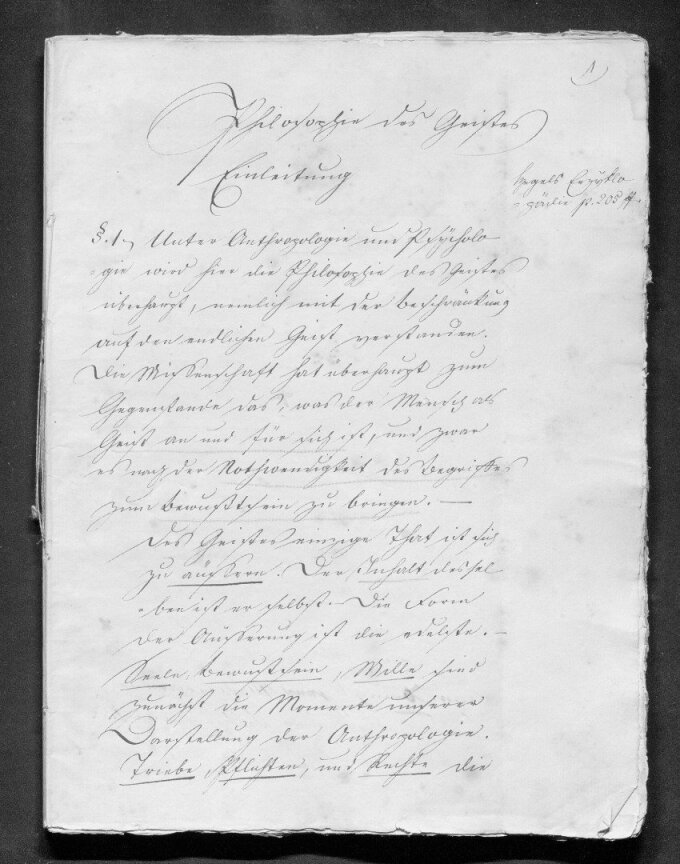 1
Philosophie des Geistes
Einleitung
Hegels Enzyklo
=pädie p. 205 ff.
§. 1. Unter Anthropologie und Psÿcholo
=gie wird hier die Philosophie des Geistes
überhaupt, nemlich mit der Beschränkung
auf den endlichen Geist verstanden.
Die Wissenschaft hat überhaupt zum
Gegenstande das, was der Mensch als
Geist an und für sich ist, und zwar
es nach der Nothwendigkeit des Begriffes
zum Bewußtsein zu bringen. —
Des Geistes einzige That ist sich
zu äußern. Der Inhalt dessel
=ben ist er selbst. Die Form
der Äusserung ist die edelste. —
Seele, Bewustsein, Wille sind
zunächst die Momente unserer
Darstellung der Anthropologie.
Triebe, Pflichten, und Rechte die